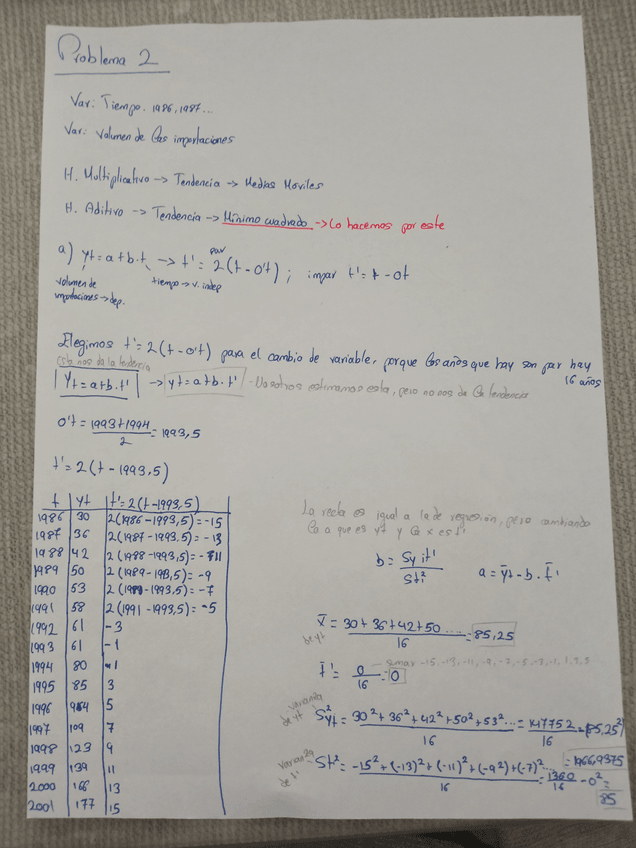 Problema 2
Var: Tiempo. 1986, 1987...
Var: Volumen de las importaciones
H. Multiplicativo → Tendencia → Medias Moviles
H. Aditivo → Tendencia → Mínimo cuadrado → Lo hacemos por este
a) yt = a + b.t → t' = 2(t - O't) ; impar t' = t - Ot
par
volumen de importaciones → dep.
tiempo → v. indep
Elegimos t' = 2(t - O't) para el cambio de variable, porque los años que hay son par hay
16 años
Esta nos da la tendencia
Yt = a + b.t' → yt = a + b.t' - Nosotros estimamos esta, pero no nos da la tendencia
O't = 1993 + 1994 / 2 = 1993,5
t' = 2(t - 1993,5)
t | yt | t' = 2(t - 1993,5)
1986 | 30 | 2(1986 - 1993,5) = -15
1987 | 36 | 2(1987 - 1993,5) = -13
1988 | 42 | 2(1988 - 1993,5) = -11
1989 | 50 | 2(1989 - 193,5) = -9
1990 | 53 | 2(1990 - 1993,5) = -7
1991 | 58 | 2(1991 - 1993,5) = -5
1992 | 61 | -3
1993 | 61 | -1
1994 | 80 | 1
1995 | 85 | 3
1996 | 94 | 5
1997 | 109 | 7
1998 | 123 | 9
1999 | 139 | 11
2000 | 166 | 13
2001 | 177 | 15
La recta es igual a la de regresión, pero cambiando
la a que es yt y la x es t'
b = Sy it' / St²
a = ȳt - b . t̄'
x̄ = 30 + 36 + 42 + 50 ..... / 16 = 85,25
de yt
t̄' = 0 / 16 = 0
sumar -15, -13, -11, -9, -7, -5, -3, -1, 1, 3, 5
varianza de yt
S²yt = 30² + 36² + 42² + 50² + 53² ... / 16 = 147752 / 16 - (85,25²)
= 1966,9375
Varianza de t'
St² = -15² + (-13)² + (-11)² + (-9²) + (-7)² ... / 16 = 1360 / 16 - 0² =
85